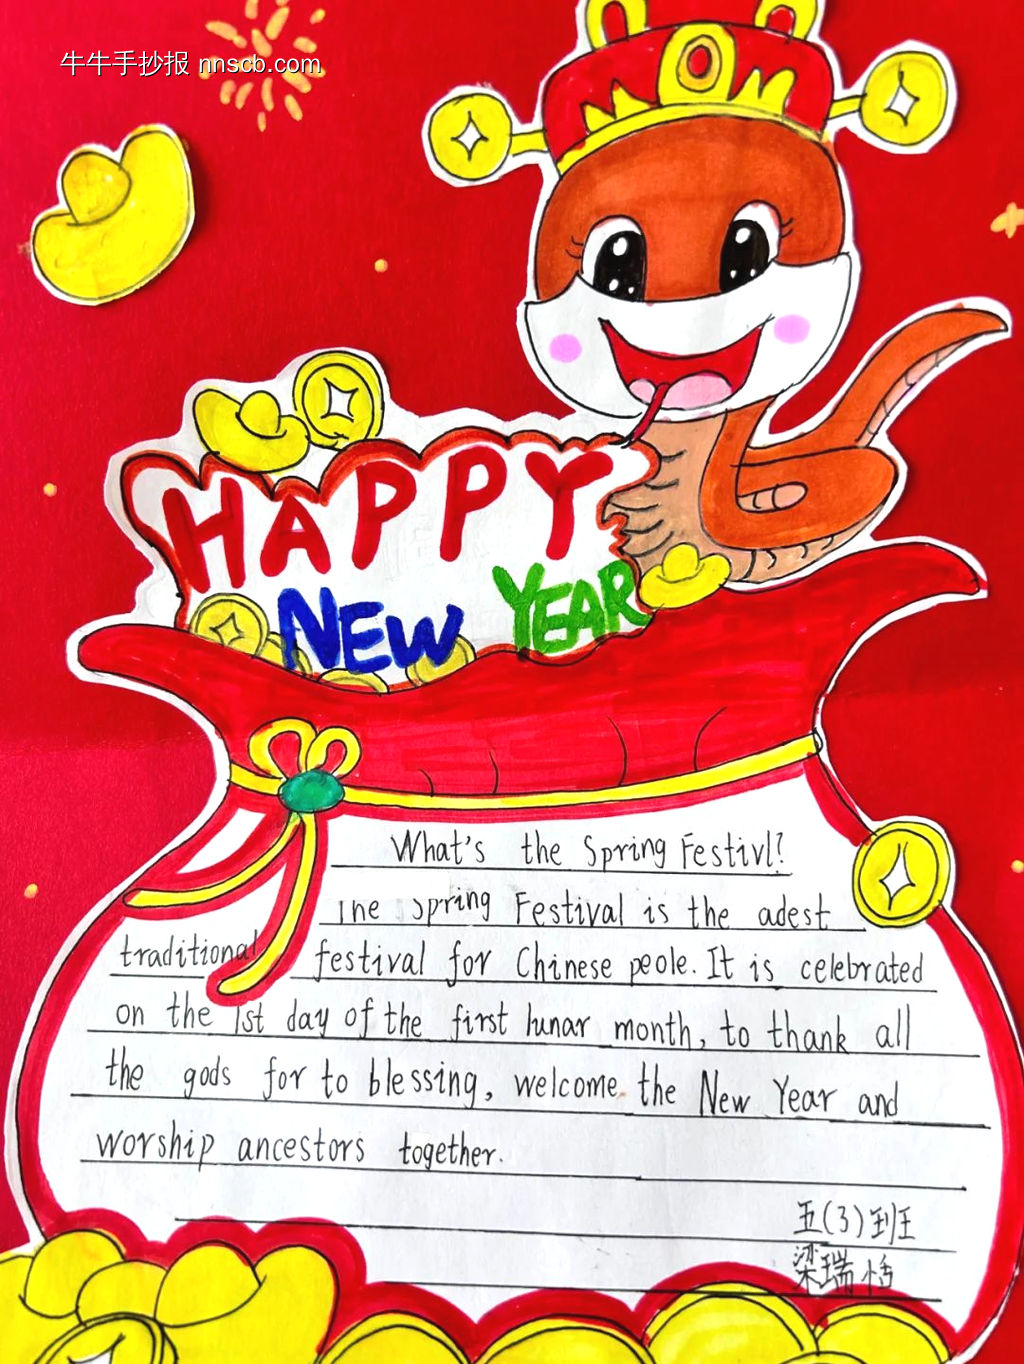 牛牛手抄报 nnscb.com
HAPPY
NEW YEAR
What's the Spring Festivl?
The Spring Festival is the adest
traditional festival for Chinese peole. It is celebrated
on the 1st day of the first lunar month, to thank all
the gods for to blessing, welcome the New Year and
worship ancestors together.
五(3)班
梁瑞恬